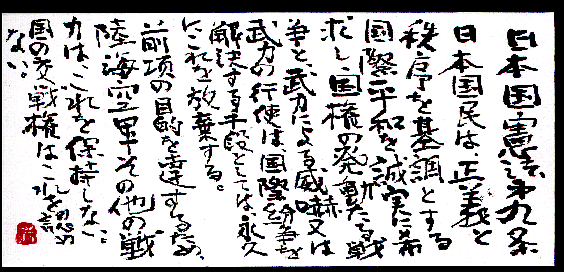 日本国憲法第九条
日本国民は、正義と
秩序を基調とする
国際平和を誠実に希
求し、国権の発動たる戦
争と、武力による威嚇又は
武力の行使は、国際紛争を
解決する手段としては、永久
にこれを放棄する。
前項の目的を達するため、
陸海空軍その他の戦
力は、これを保持しない。
国の交戦権はこれを認め
ない。